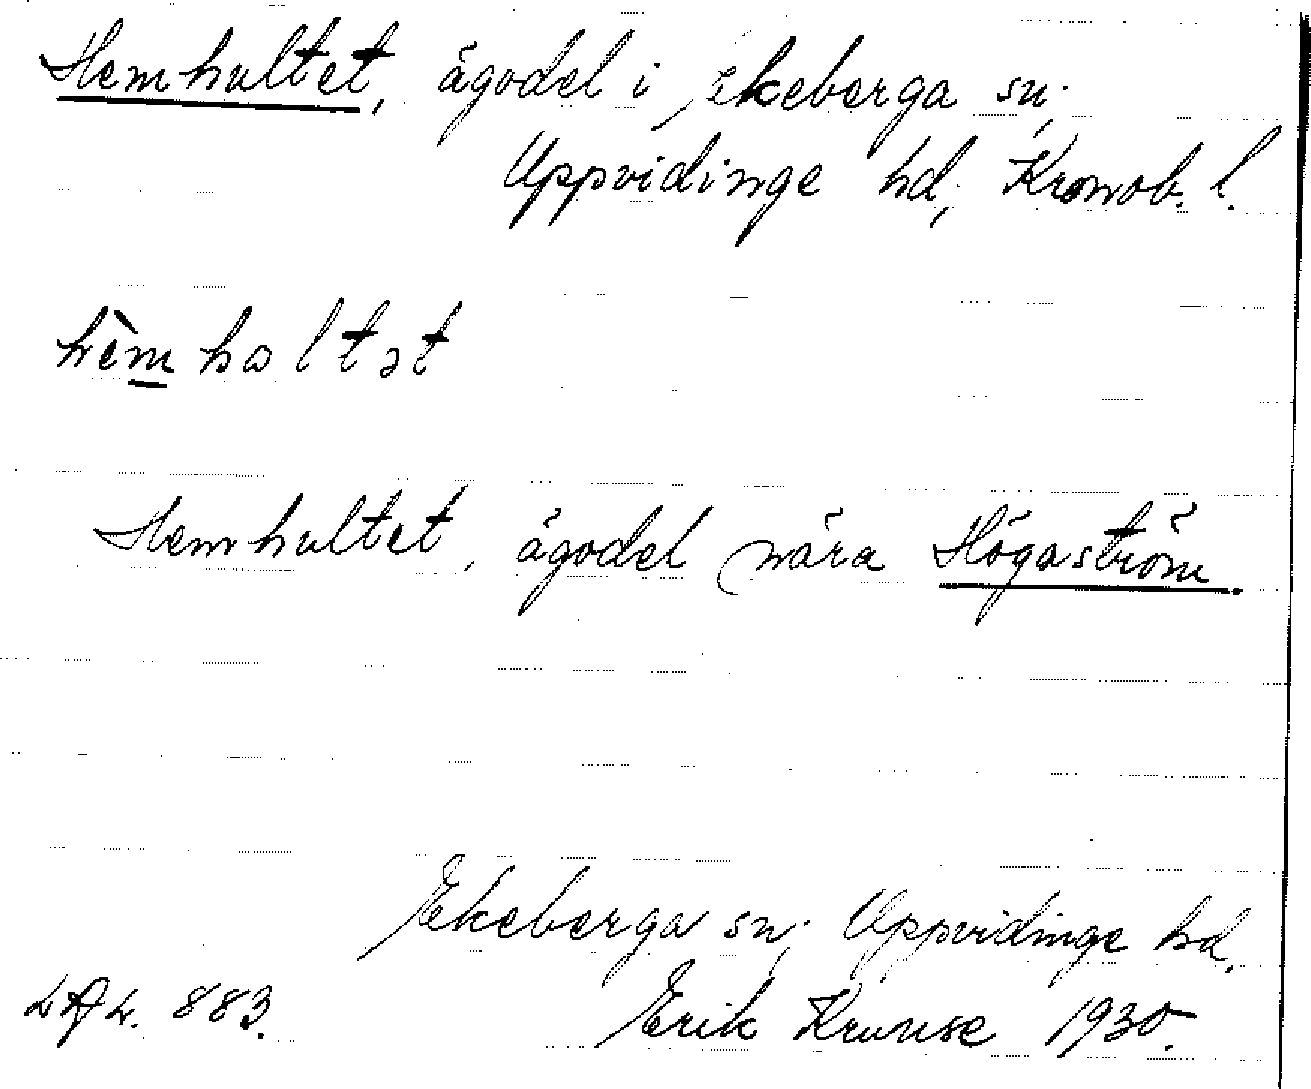 Hemhultet, ägodel i Ekeberga sn,
Uppvidinge hd, Kronob. l.
hèmhaltət
Hemhultet, ägodel nära Högaström.
Ekeberga sn, Uppvidinge hd.
883. Erik Kruuse 1930.